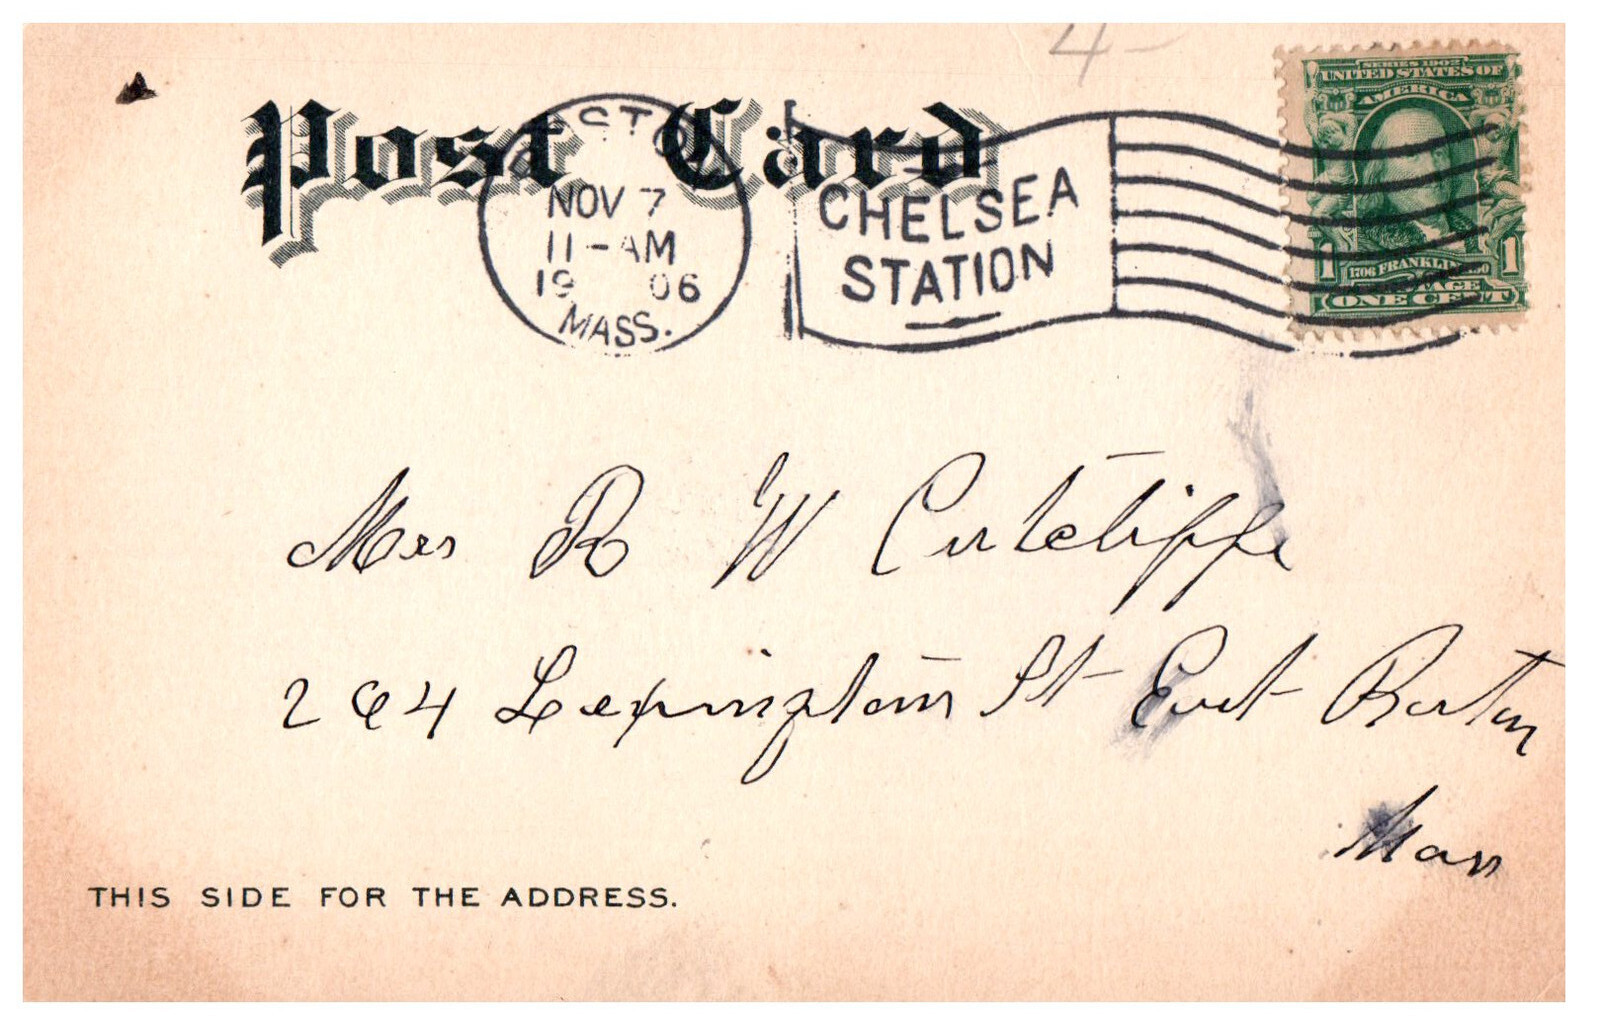 4-
Post Card
BOSTON
NOV 7
11-AM
1906
MASS.
CHELSEA
STATION
SERIES 1902
UNITED STATES OF
AMERICA
1706 FRANKLIN 1790
POSTAGE
1 1
ONE CENT
Mrs R W Cutcliffe
264 Lexington St East Boston
Mass
THIS SIDE FOR THE ADDRESS.